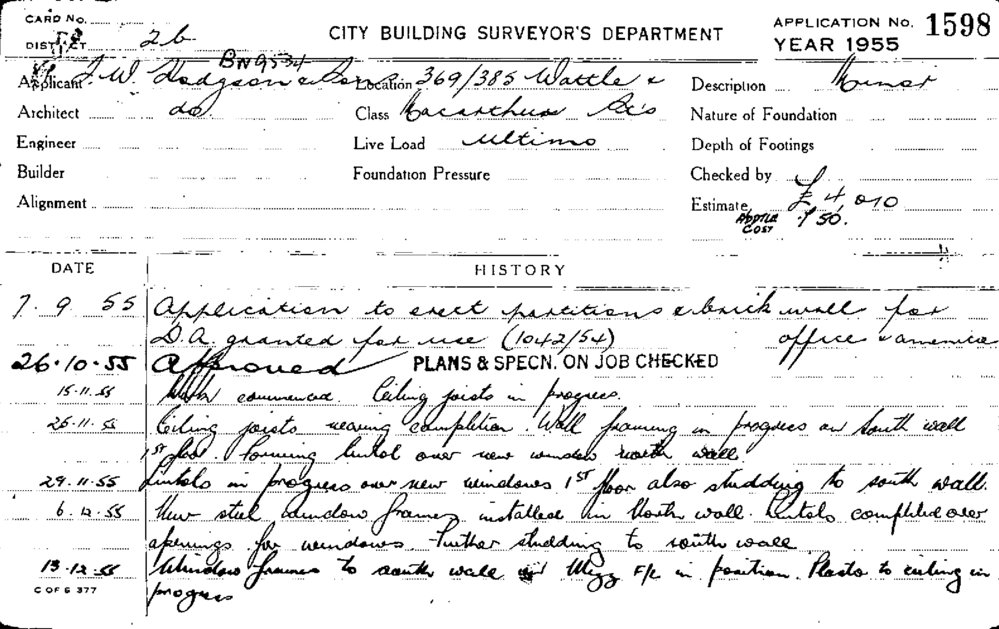 CARD No.
DISTRICT 26
CITY BUILDING SURVEYOR'S DEPARTMENT
APPLICATION No. 1598
YEAR 1955
BN9534
Applicant J. W. Hodgson & Sons Location 369/385 Wattle & Description Minor
Architect do Class Macarthur Sts Nature of Foundation
Engineer Live Load Ultimo Depth of Footings
Builder Foundation Pressure Checked by
Alignment Estimate £ 4,010
ADDTLL COST £50.
DATE HISTORY
7. 9. 55 Application to erect partitions & brick wall for
D.A. granted for use (1042/54) office & amenities
26.10.55 Approved PLANS & SPECN. ON JOB CHECKED
15.11.55 Work commenced. Ceiling joists in progress.
25.11.55 Ceiling joists nearing completion. Wall framing in progress on South wall
1ST floor. Forming lintol over new windows north wall
29.11.55 Lintols in progress over new windows 1ST floor also studding to south wall.
6.12.55 New steel window frames installed in North wall. Lintols completed over
openings for windows. Further studding to south wall
13.12.55 Window frames to south wall Mezz F/L in position. Plaster to ceiling in
progress
C OF S 377